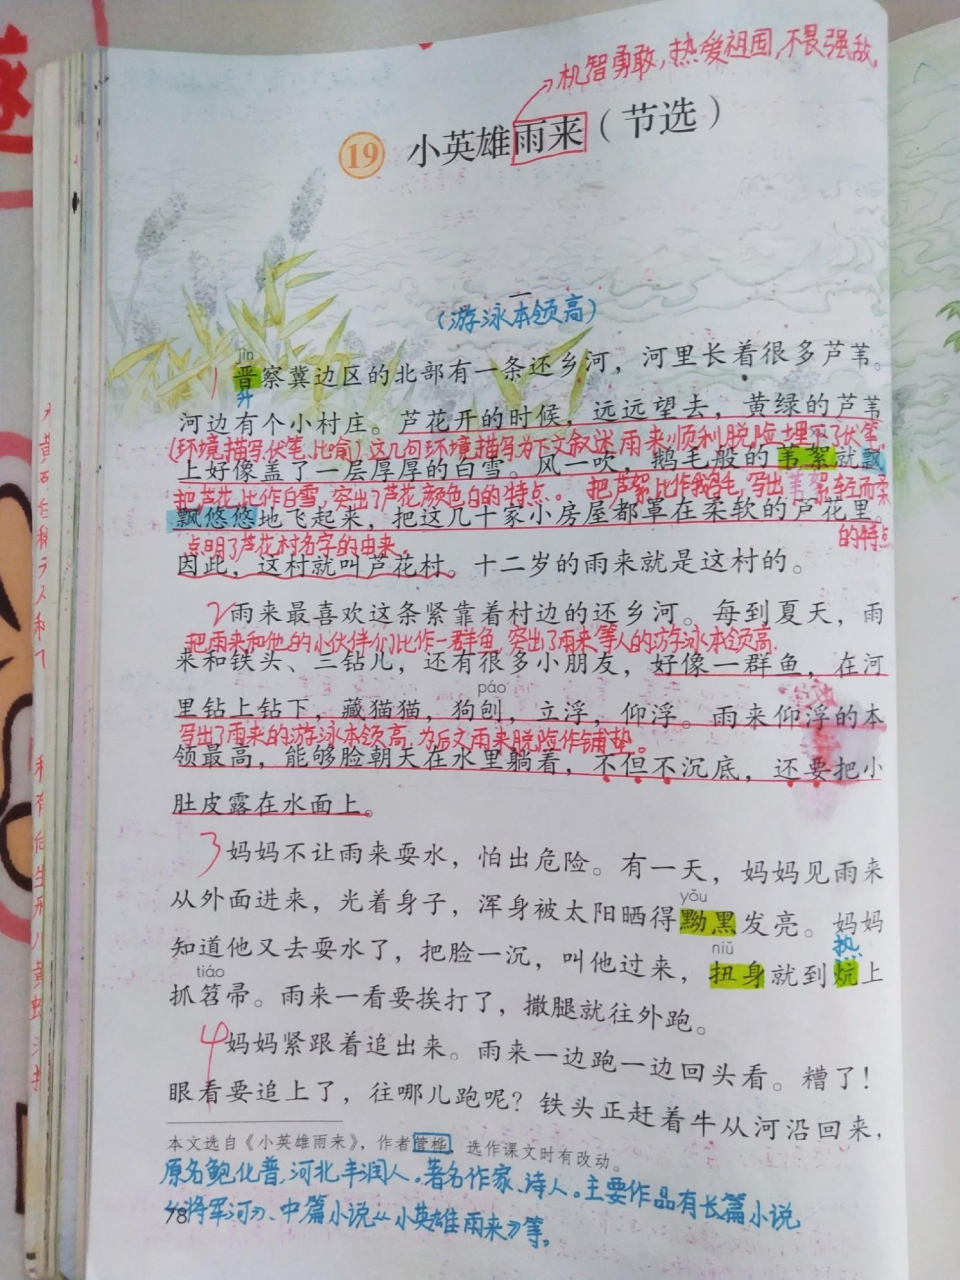 机智勇敢,热爱祖国,不畏强敌。
19 小英雄雨来(节选)
一
(游泳本领高)
jìn
1 晋察冀边区的北部有一条还乡河,河里长着很多芦苇。
升
河边有个小村庄。芦花开的时候,远远望去,黄绿的芦苇
(环境描写、伏笔、比喻)这几句环境描写为下文叙述雨来顺利脱险埋下了伏笔。
上好像盖了一层厚厚的白雪。风一吹,鹅毛般的苇絮就飘
把芦花比作白雪,突出了芦花颜色白的特点。 把芦絮比作鹅毛,写出苇絮轻而柔
飘悠悠地飞起来,把这几十家小房屋都罩在柔软的芦花里。
点明了芦花村名字的由来。 的特点
因此,这村就叫芦花村。十二岁的雨来就是这村的。
2 雨来最喜欢这条紧靠着村边的还乡河。每到夏天,雨
把雨来和他的小伙伴们比作一群鱼,突出了雨来等人的游泳本领高。
来和铁头、三钻儿,还有很多小朋友,好像一群鱼,在河
páo
里钻上钻下,藏猫猫,狗刨,立浮,仰浮。雨来仰浮的本
写出了雨来的游泳本领高,为后文雨来脱险作铺垫。
领最高,能够脸朝天在水里躺着,不但不沉底,还要把小
肚皮露在水面上。
3 妈妈不让雨来耍水,怕出危险。有一天,妈妈见雨来
从外面进来,光着身子,浑身被太阳晒得黝黑发亮。妈妈
yǒu
知道他又去耍水了,把脸一沉,叫他过来,扭身就到炕上
niǔ 热
tiáo
抓笤帚。雨来一看要挨打了,撒腿就往外跑。
4 妈妈紧跟着追出来。雨来一边跑一边回头看。糟了!
眼看要追上了,往哪儿跑呢?铁头正赶着牛从河沿回来,
本文选自《小英雄雨来》,作者管桦,选作课文时有改动。
原名鲍化普,河北丰润人。著名作家、诗人。主要作品有长篇小说
《将军河》、中篇小说《小英雄雨来》等。
78